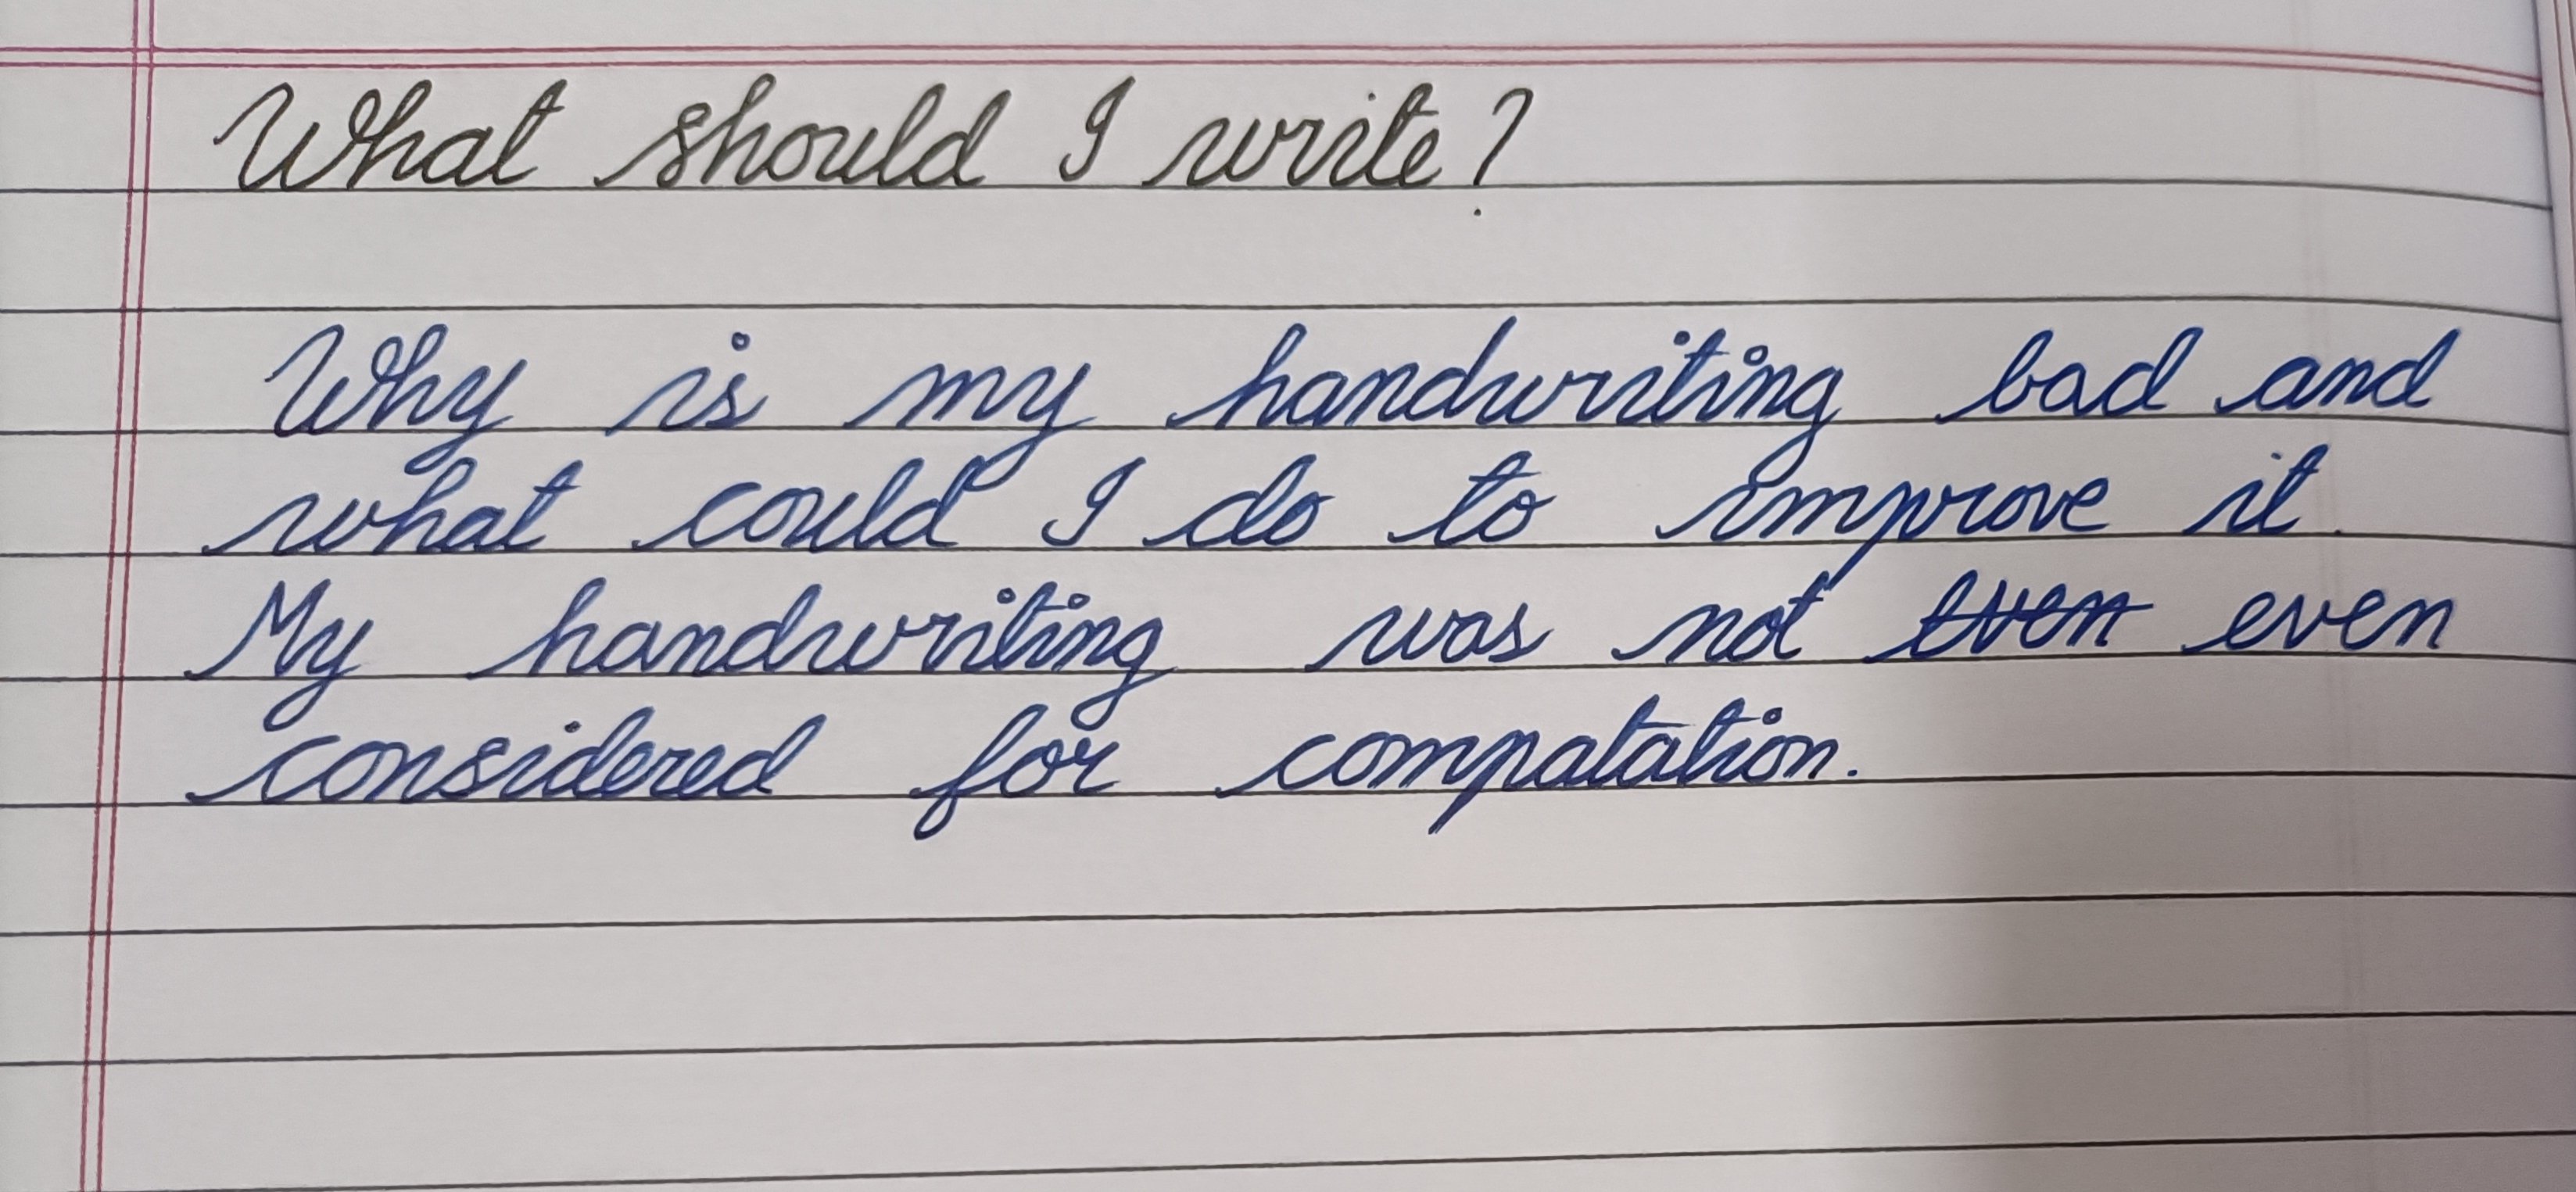 What should I write?
Why is my handwriting bad and
what could I do to improve it.
My handwriting was not even even
considered for compatation.